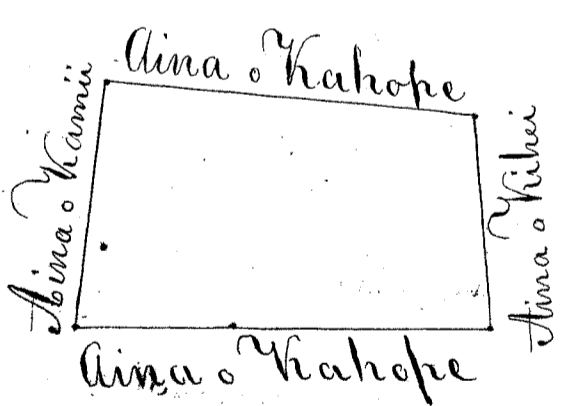 Aina o Kahope
Aina o Kamii
Aina o Kihei
Aina o Kahope